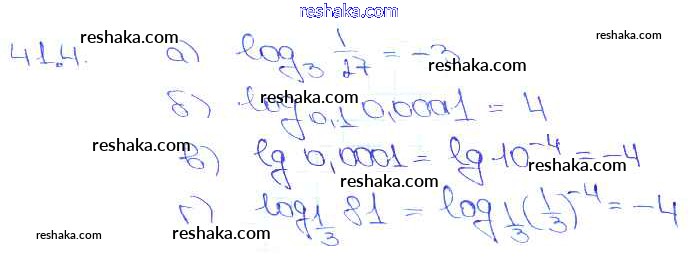 reshaka.com
reshaka.com
41.4. а) log₃ 1/27 = -3
reshaka.com
reshaka.com
б) log₀,₁ 0,0001 = 4
reshaka.com
reshaka.com
в) lg 0,0001 = lg 10⁻⁴ = -4
reshaka.com
reshaka.com
г) log_{1/3} 81 = log_{1/3} (1/3)⁻⁴ = -4
reshaka.com reshaka.com reshaka.com
reshaka.com